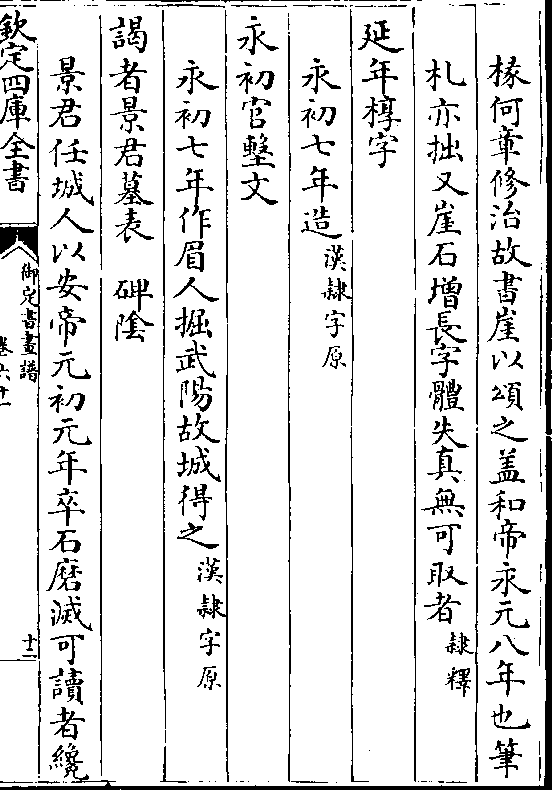 椽何章修治故書崖以頌之盖和帝永元八年也筆
札亦拙又崖石增長字體失真無可取者隸釋
延年椁字
永初七年造漢隸字原
永初官墼文
永初七年作眉人掘武陽故城得之漢隸字原
謁者景君墓表　碑陰
景君任城人以安帝元初元年卒石磨滅可讀者纔
欽定四庫全書
御定書畫譜
卷六十一
十二